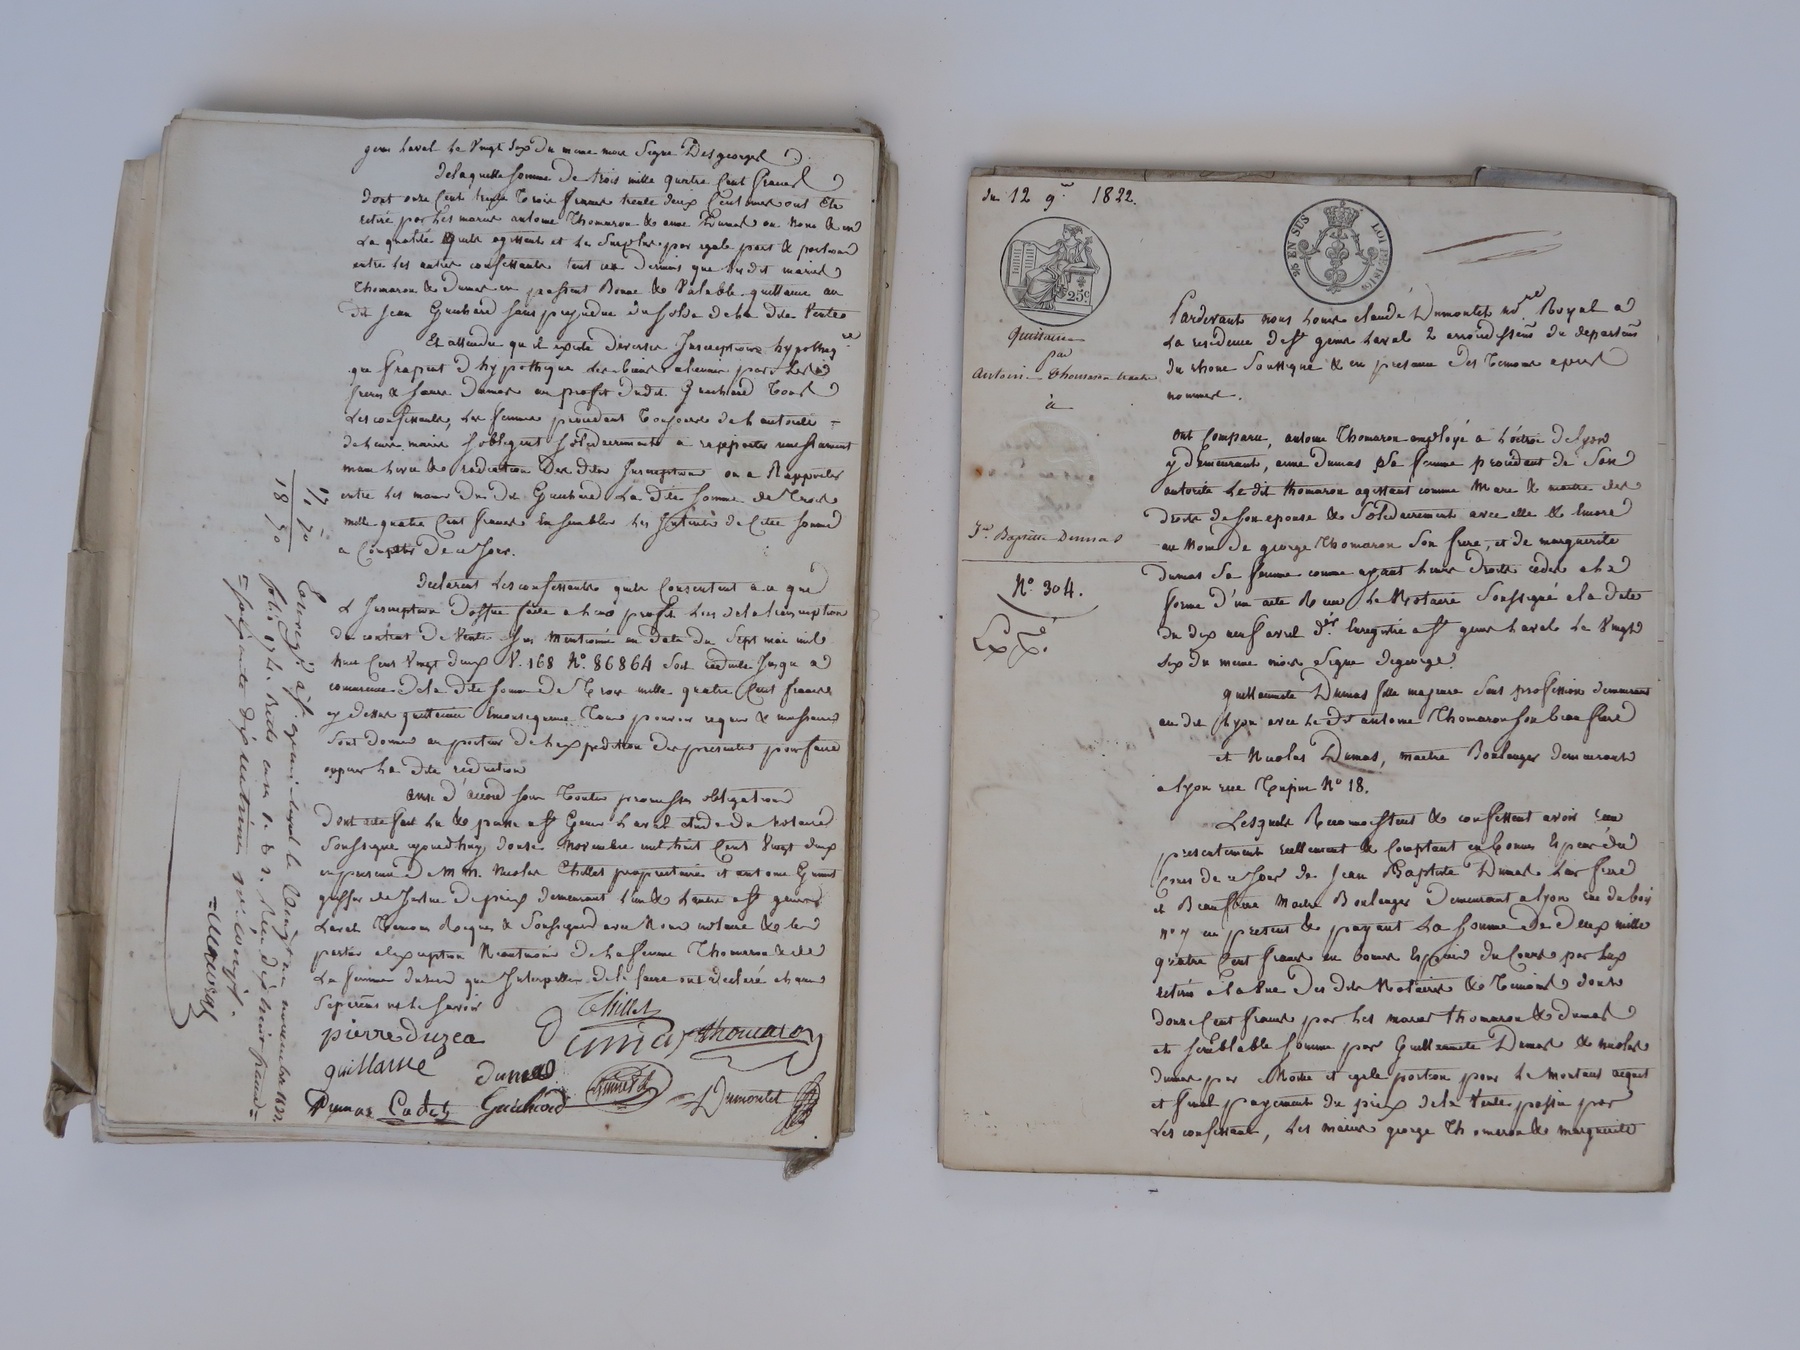 genis Laval le Vingt Six du meme mois Signé Desgeorges
de laquelle Somme de trois mille quatre Cent francs
dont onze Cent trente Trois francs trente deux Centimes ont été
retiré par les mariés antoine Thomaron & anne Dumas au Nom & en
La qualité quils agissent et le Surplus par egale part & portion
entre les autres confessants tant ces Derniers que les dit mariés
Thomaron & Dumas en passent Bonne & Valable quittance au
dit Jean Guichard sans prejudice du solde de la dite Vente
Et attendu qu il existe diverses Inscriptions hypotheq.re
qui frapent d hypotheque les biens alienés par les
freres & soeurs Dumas au profit dudit Guichard Tous
Les confessants, les femmes procedant Toujours de l autorité
de leurs maris s obligent solidairement a rapporter
main levée & radiation Des dites Inscriptions ou a Rapporter
entre les mains du dit Guichard La dite somme de Trois
mille quatre Cent francs Ensemble les Intérêts de Cette somme
a Compter de ce Jour.
declarent les confessants quils Consentent a ce que
L Inscription d'office faite a leur profit lors de la transcription
du contrat de Vente sus Mentionné en date du Sept mai mil
huit Cent Vingt deux V. 168 N° 86864 Soit reduite Jusqu a
concurrence de la dite somme de Trois mille quatre Cent francs
cy dessus quittancée En consequence Tous pouvoirs requis & necessaires
Sont donnés au porteur de l expedition des presentes pour faire
operer la dite reduction
ainsi d accord sous Toutes promesses obligations
dont acte fait lu & passé a S.t Genis Laval etude du notaire
Soussigné aujourdhuy douze Novembre mil huit Cent Vingt deux
en presence de MM. Nicolas Thillet proprietaire et antoine Guinet
greffier de Justice de paix demeurant l un & l autre a S.t genis
Laval Temoins Requis & Soussignés avec Nous notaire & les
parties a l exception Neantmoins de la femme Thomaron & de
La femme duzea qui Interpellées de le faire ont declaré chacune
Separément ne le savoir
Thillet
pierre duzea
Dumas thomaron
guillaume
dumas
Dumas Cadet Guichard Guinet Dumontet
17 70
1 70
18 70
Enregistré a S.t genis Laval le Vingt un novembre 1822
folio 174 Recto case 1. & 2. Reçu dix sept francs
= Soixante dix centimes
= Mauras
du 12 9.re 1822.
25 EN SUS
LOI DE 1816
25c
Quittance
par
Antoine Thomaron & autres
à
J.n Baptiste Dumas
N° 304.
Exp.é
Pardevant nous Louis claude Dumontet no.re Royal a
La residence de S.t genis Laval 2 arrondissem.t du departem.t
du rhone Soussigné & en presence des Temoins apres
nommés.
ont Comparu, antoine Thomaron employé a L'octroi de Lyon
y demeurant, anne Dumas Sa femme procedant de Son
autorité Le dit thomaron agissant comme Mari & maitre des
droits de son epouse & Solidairement avec elle & Encore
au Nom de george Thomaron Son frere, et de marguerite
Dumas Sa femme comme ayant leurs droits cedés a la
forme d'un acte Recu le Notaire Soussigné a la date
du dix neuf avril d.er Enregistré a S.t genis Laval le Vingt
Six du meme mois Signé degeorge
guillaumette Dumas fille majeure Sans profession demeurant
au dit Lyon avec le dit antoine Thomaron son beau frere
et Nicolas Dumas, maitre Boulanger demeurant
a lyon rue Tupin N° 18.
Lesquels Reconnoissent & confessent avoir recu
presentement reellement & Comptant en bonnes Especes du
Cours de ce Jour de Jean Baptiste Dumas leur frere
et Beaufrere Maitre Boulanger demeurant a lyon rue dubois
N° 7 ici present & payant La Somme de deux mille
quatre Cent francs en bonnes Especes du Cours par Eux
retirés a la Vue des dits Notaires & Temoins dont
douze Cent francs par les mariés thomaron & dumas
et semblable somme par Guillaumette Dumas & nicolas
dumas par Moitié et egale portion pour le montant acquit
et final payement du prix de la Vente passée par
Les confessants, Les mariés george Thomaron & marguerite